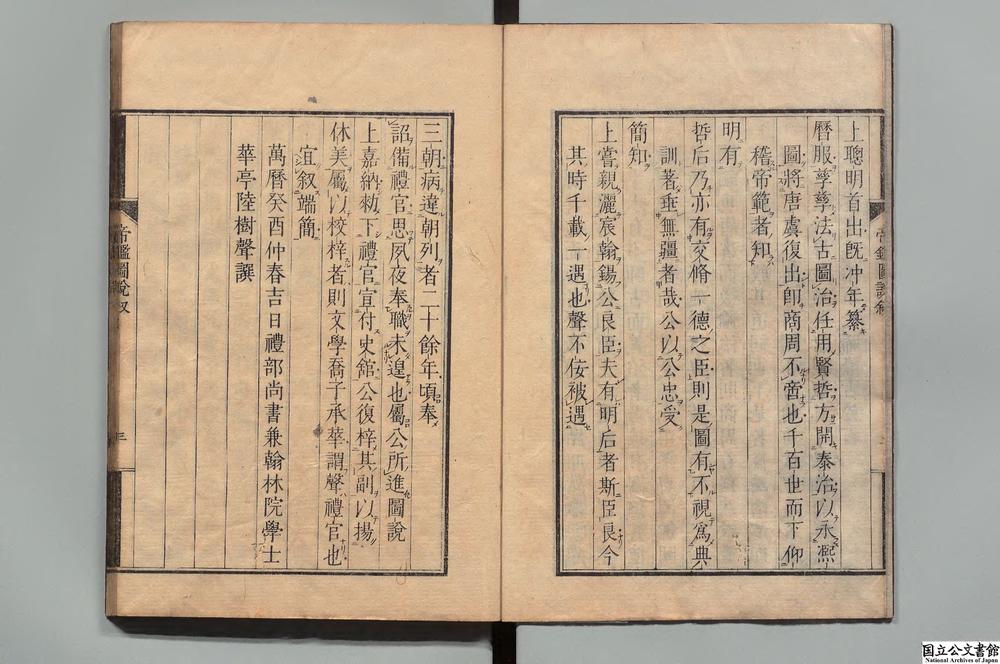 上聰明首出旣冲年纂
曆服孳孳法古圖治任用賢哲方開泰治以永熈
圖將唐虞復出卽商周不啻也千百世而下仰
稽帝範者知
明有
哲后乃亦有交脩一德之臣則是圖有不視爲典
訓著垂無疆者哉公以公忠受
簡知
上嘗親灑宸翰錫公良臣夫有明后者斯臣良今
其時千載一遇也聲不佞被遇
三朝病違朝列者二十餘年頃奉
詔備禮官思夙夜奉職未遑也屬公所進圖說
上嘉納勑下禮官宣付史館公復梓其副以揚
休美屬以校梓者則文學喬子承華謂聲禮官也
宜叙端簡
萬曆癸酉仲春吉日禮部尚書兼翰林院學士
華亭陸樹聲譔
帝鑑圖說叙
三
国立公文書館
National Archives of Japan